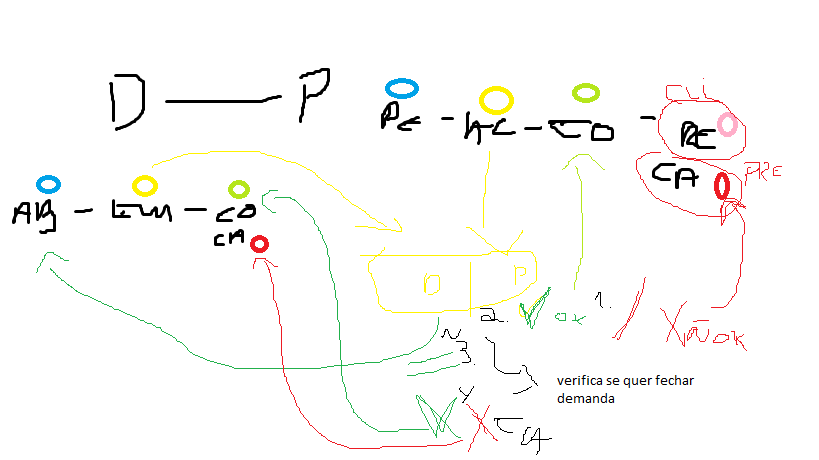 CLI
D — P
PE - AC - CO - RE
CA
PRE
AB - EM - CO
CA
D P
2. OK 1. X ÑOK
N
3.
verifica se quer fechar
demanda
X CA